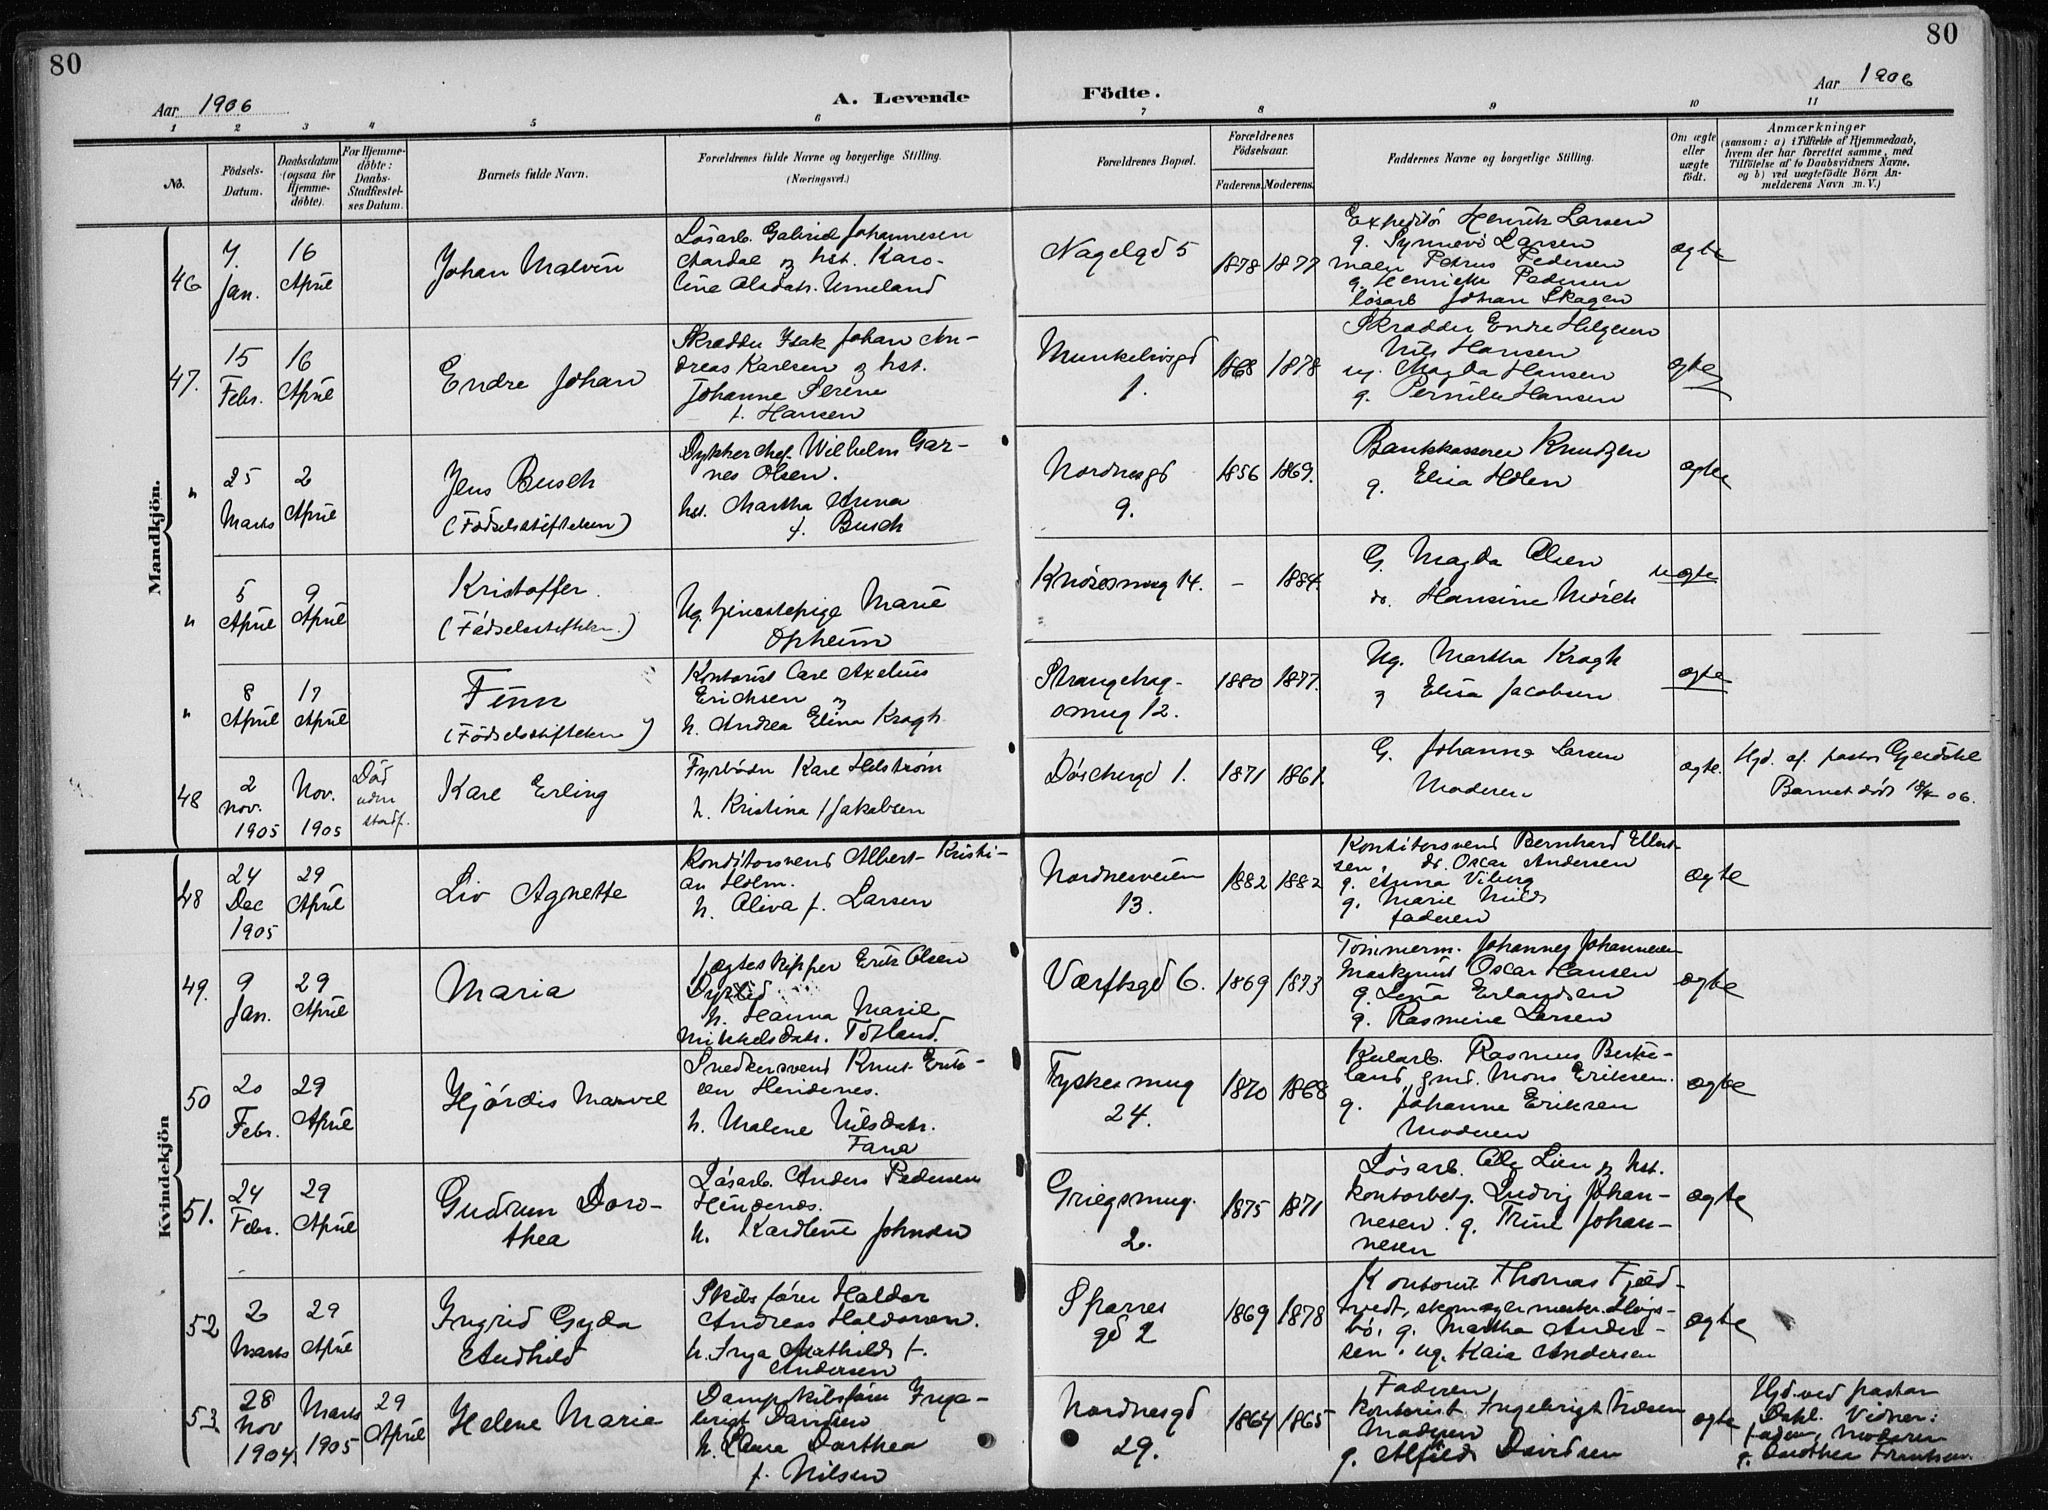 80
80
Aar 1906
A. Levende
Födte.
Aar 1906
1 2 3 4 5 6 7 8 9 10 11
No.
Födsels-
Datum.
Daabsdatum
(ogsaa for
Hjemme-
døbte).
For Hjemme-
døbte:
Daabs-
Stadfæstel-
ses Datum.
Barnets fulde Navn.
Forældrenes fulde Navne og borgerlige Stilling.
(Næringsvei.)
Forældrenes Bopæl.
Forældrenes
Födselsaar.
Faderens. Moderens.
Faddernes Navne og borgerlige Stilling.
Om ægte
eller
uægte
født.
Anmærkninger
(saasom: a) i Tilfælde af Hjemmedaab,
hvem der har forrettet samme, med
Tilføielse af to Daabsvidners Navne,
og b) ved uægtefödte Börn An-
melderens Navn m. V.)
Mandkjön.
46
7.
Jan.
16
April
Johan Malvin
Løsarb. Gabriel Johannesen
Aardal og hst. Karo-
line Olsdatr. Urneland
Nagelgd 5
1878 1877
Expeditør Henrik Larsen
g. Synnøve Larsen
maler Petrus Pedersen
g. Henriette Pedersen
løsarb Johan Skagen
ægte
47.
15
Febr.
16
April
Endre Johan
Skrædder Isak Johan An-
dreas Karlsen og hst.
Johanne Serene
f. Hansen
Munkelivsgd
1.
1868 1878
Skrædder Endre Helgesen
Nils Hansen
ug. Magda Hansen
g. Pernille Hansen
ægte
"
25
Marts
2
April
Jens Busch
(Fødselsstiftelsen)
Dykkerchef Wilhelm Gar-
nes Olsen.
hst. Martha Anna
f. Busch
Nordnesgd
9.
1856 1869.
Bankkasserer Knudzen
g. Elisa Holen
ægte
"
5
April
9
April
Kristoffer.
(Fødselsstiftelsen.)
Ug. tjenestepige Marie
Opheim
Knøsesmug 14.
- 1884.
G. Magda Olsen
do. Hansine Mörch
uægte
"
8
April
17
April
Finn
(Fødselsstiftelsen)
Kontorist Carl Axelius
Erichsen og
h. Andrea Elina Kragh
Strangehag-
smug 12.
1880 1877.
Ug. Martha Kragh
og Elisa Jacobsen
ægte
48
2
Nov.
1905
Nov.
1905
Død
uden
stadf.
Karl Erling
Fyrbøder Karl Helstrøm
h. Kristina f Jakobsen
Døschergd 1.
1871 1861.
G. Johanna Larsen
Moderen
ægte.
Hjd. af pastor Gjerdahl
Barnet død 18/4 06.
Kvindekjön
48
24
Dec
1905
29
April
Liv Agnette
Konditorsvend Albert Kristi-
an Holm.
h. Oliva f. Larsen
Nordnesveien
13.
1882 1882
Konditorsvend Bernhard Ellert-
sen, do. Oscar Andersen
g. Anna Viberg
g. Marie Milde
faderen
ægte
49.
9
Jan.
29
April
Maria
Jægteskipper Erik Olsen
Dyrlid
h. Hanna Marie
Mikkelsdatr. Totland.
Værftsgd 6.
1869 1873
Tømmerm. Johannes Johannesen
Maskinist Oscar Hansen
g. Lena Erlandsen
g. Rasmine Larsen
ægte
50
20
Febr.
29
April
Hjördis Marvel
Snedkersvend Knut Erik-
sen Herdenes.
h. Malene Nilsdatr.
Fana
Tyskesmug
24.
1870 1868
Kularb. Rasmus Birke-
land, gmd. Mons Eriksen.
g. Johanne Eriksen
Moderen
ægte
51.
24
Febr.
29
April
Gudrun Doro-
thea
Løsarb. Anders Pedersen
Hindenes.
h. Karoline Johnsen
Griegsmug.
2.
1875 1871
Løsarb. Ole Lien og hst.
kontorbetj. Ludvig Johan-
nesen. g. Trine Johan-
nesen
ægte
52
2
Marts
29
April
Ingrid Gyda
Audhild
Skibsfører Haldor
Andreas Haldorsen.
h. Inga Mathilde f.
Andersen
Sparres
gd 2
1869 1878
Kontorist Thomas Fjeld-
tvedt, skomagermester Haugs-
bö, g. Martha Ander-
sen, ug. Kaia Andersen
ægte
53.
28
Nov
1904
Marts
1905
29
April
Helene Maria
Dampskibsfører Inge-
brigt Davidsen
h. Laura Dorthea
f. Nilsen
Nordnesgd
29.
1864 1865
Faderen
Kontorist Ingebrigt Nilsen
Moderen
g. Alfilde Davidsen
ægte
Hjd. ved pastor
Dahl. Vidner:
faderen, Moderen
g. Dorothea